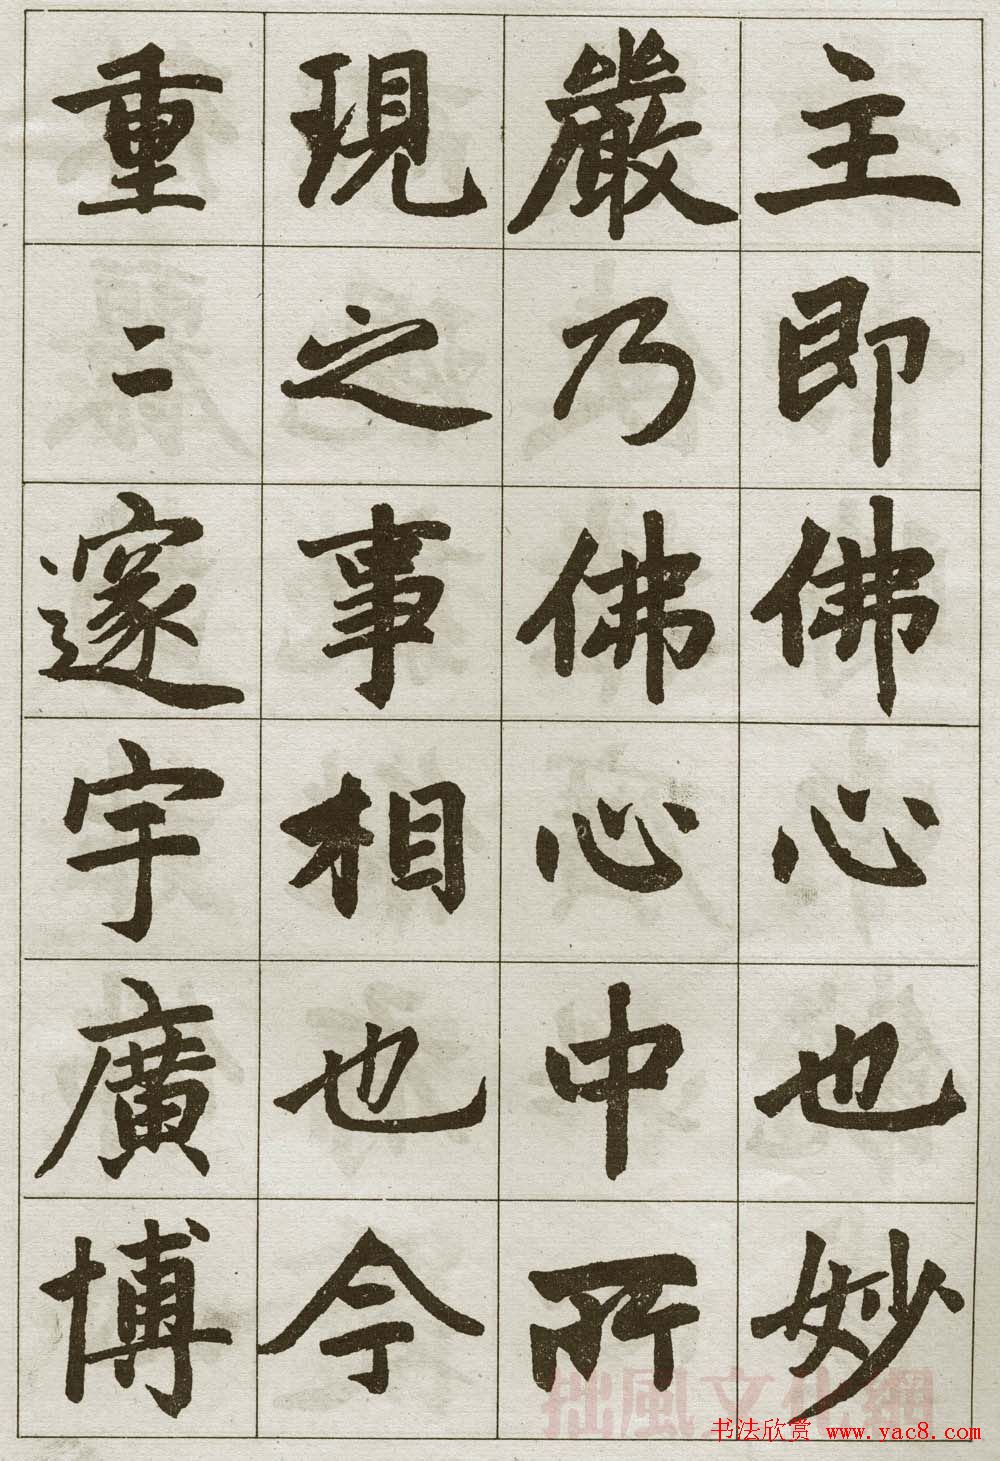 主即佛心也妙
嚴乃佛心中所
現之事相也今
重二邃宇廣博
拙風文化網
书法欣赏 www.yac8.com